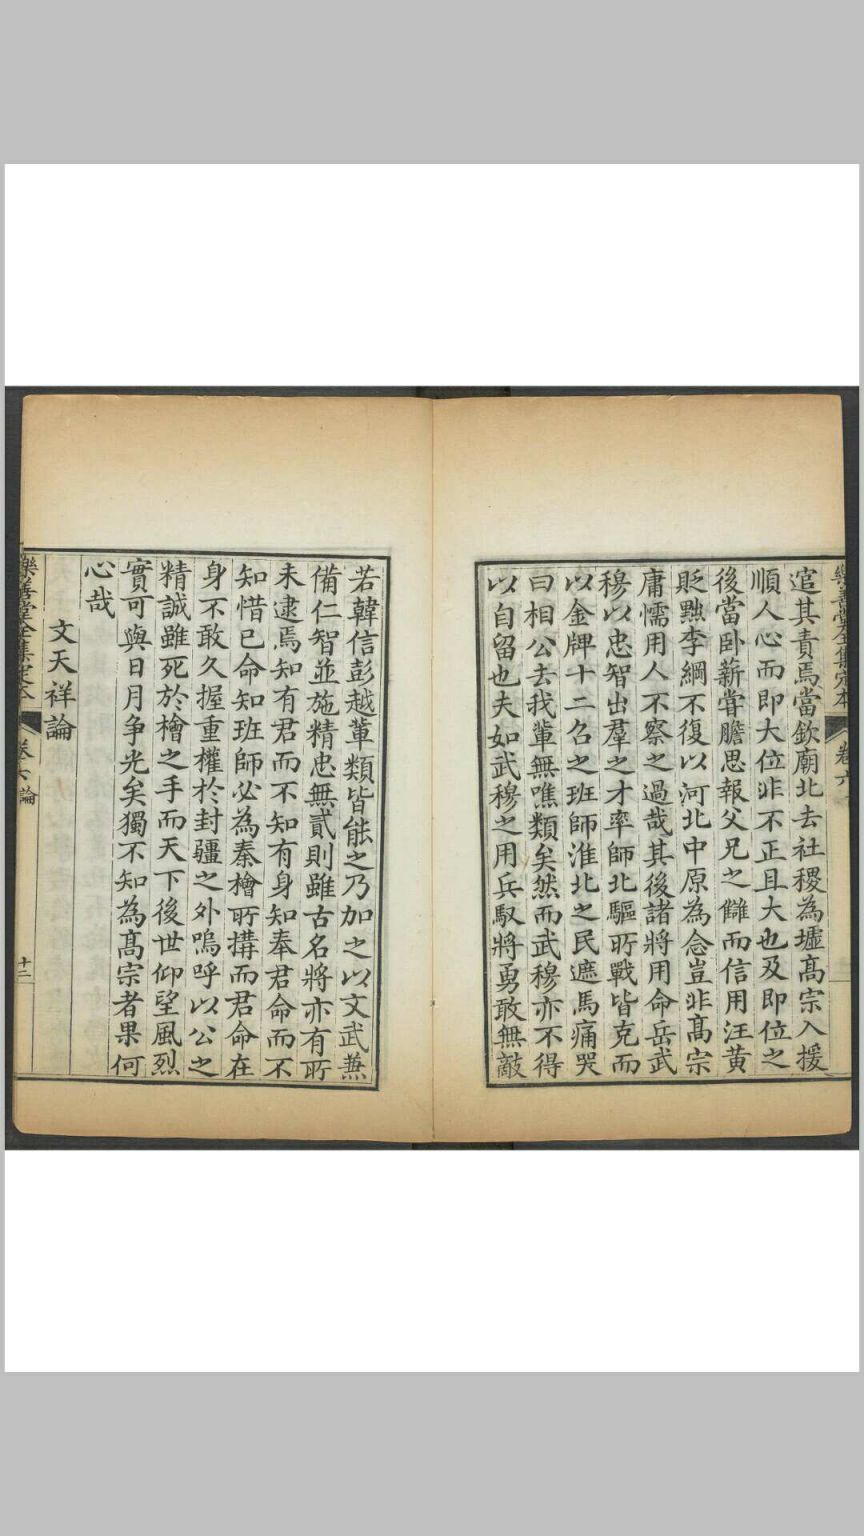 逭其責焉當欽廟北去社稷為墟髙宗入援
順人心而即大位非不正且大也及即位之
後當卧薪嘗膽思報父兄之讎而信用汪黄
貶黜李綱不復以河北中原為念豈非髙宗
庸懦用人不察之過哉其後諸將用命岳武
穆以忠智出羣之才率師北驅所戰皆克而
以金牌十二召之班師淮北之民遮馬痛哭
曰相公去我輩無噍類矣然而武穆亦不得
以自留也夫如武穆之用兵馭將勇敢無敵
若韓信彭越輩類皆能之乃加之以文武兼
備仁智並施精忠無貳則雖古名將亦有所
未逮焉知有君而不知有身知奉君命而不
知惜已命知班師必為秦檜所搆而君命在
身不敢久握重權於封疆之外嗚呼以公之
精誠雖死於檜之手而天下後世仰望風烈
實可與日月争光矣獨不知為髙宗者果何
心哉
文天祥論
樂善堂全集定本
卷六 論
十二